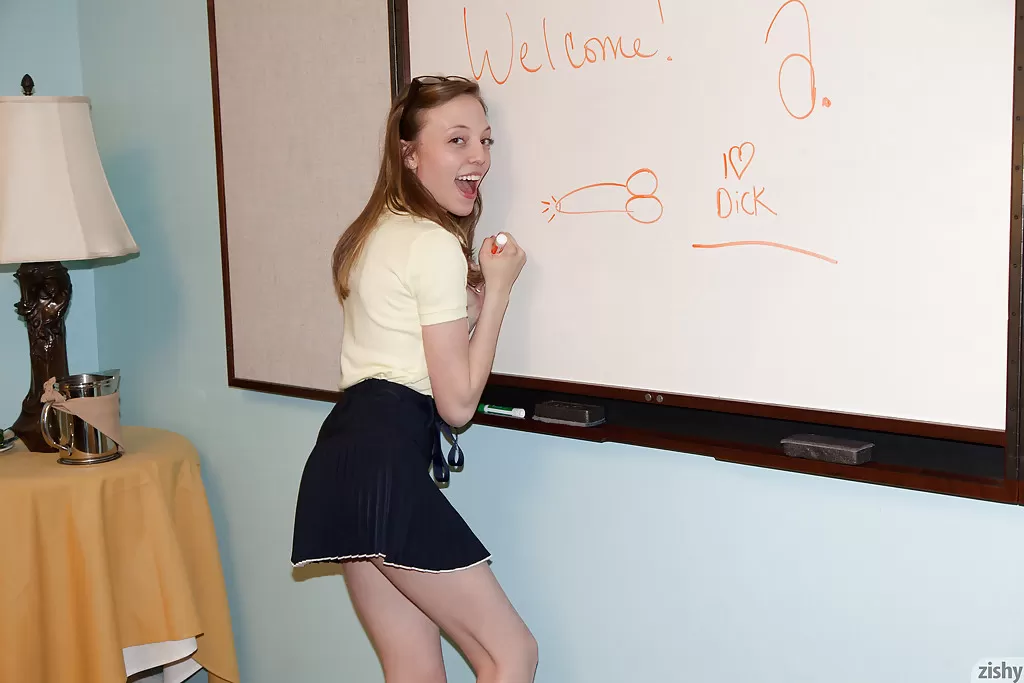 Welcome! 2.
I ♡
Dick
zishy